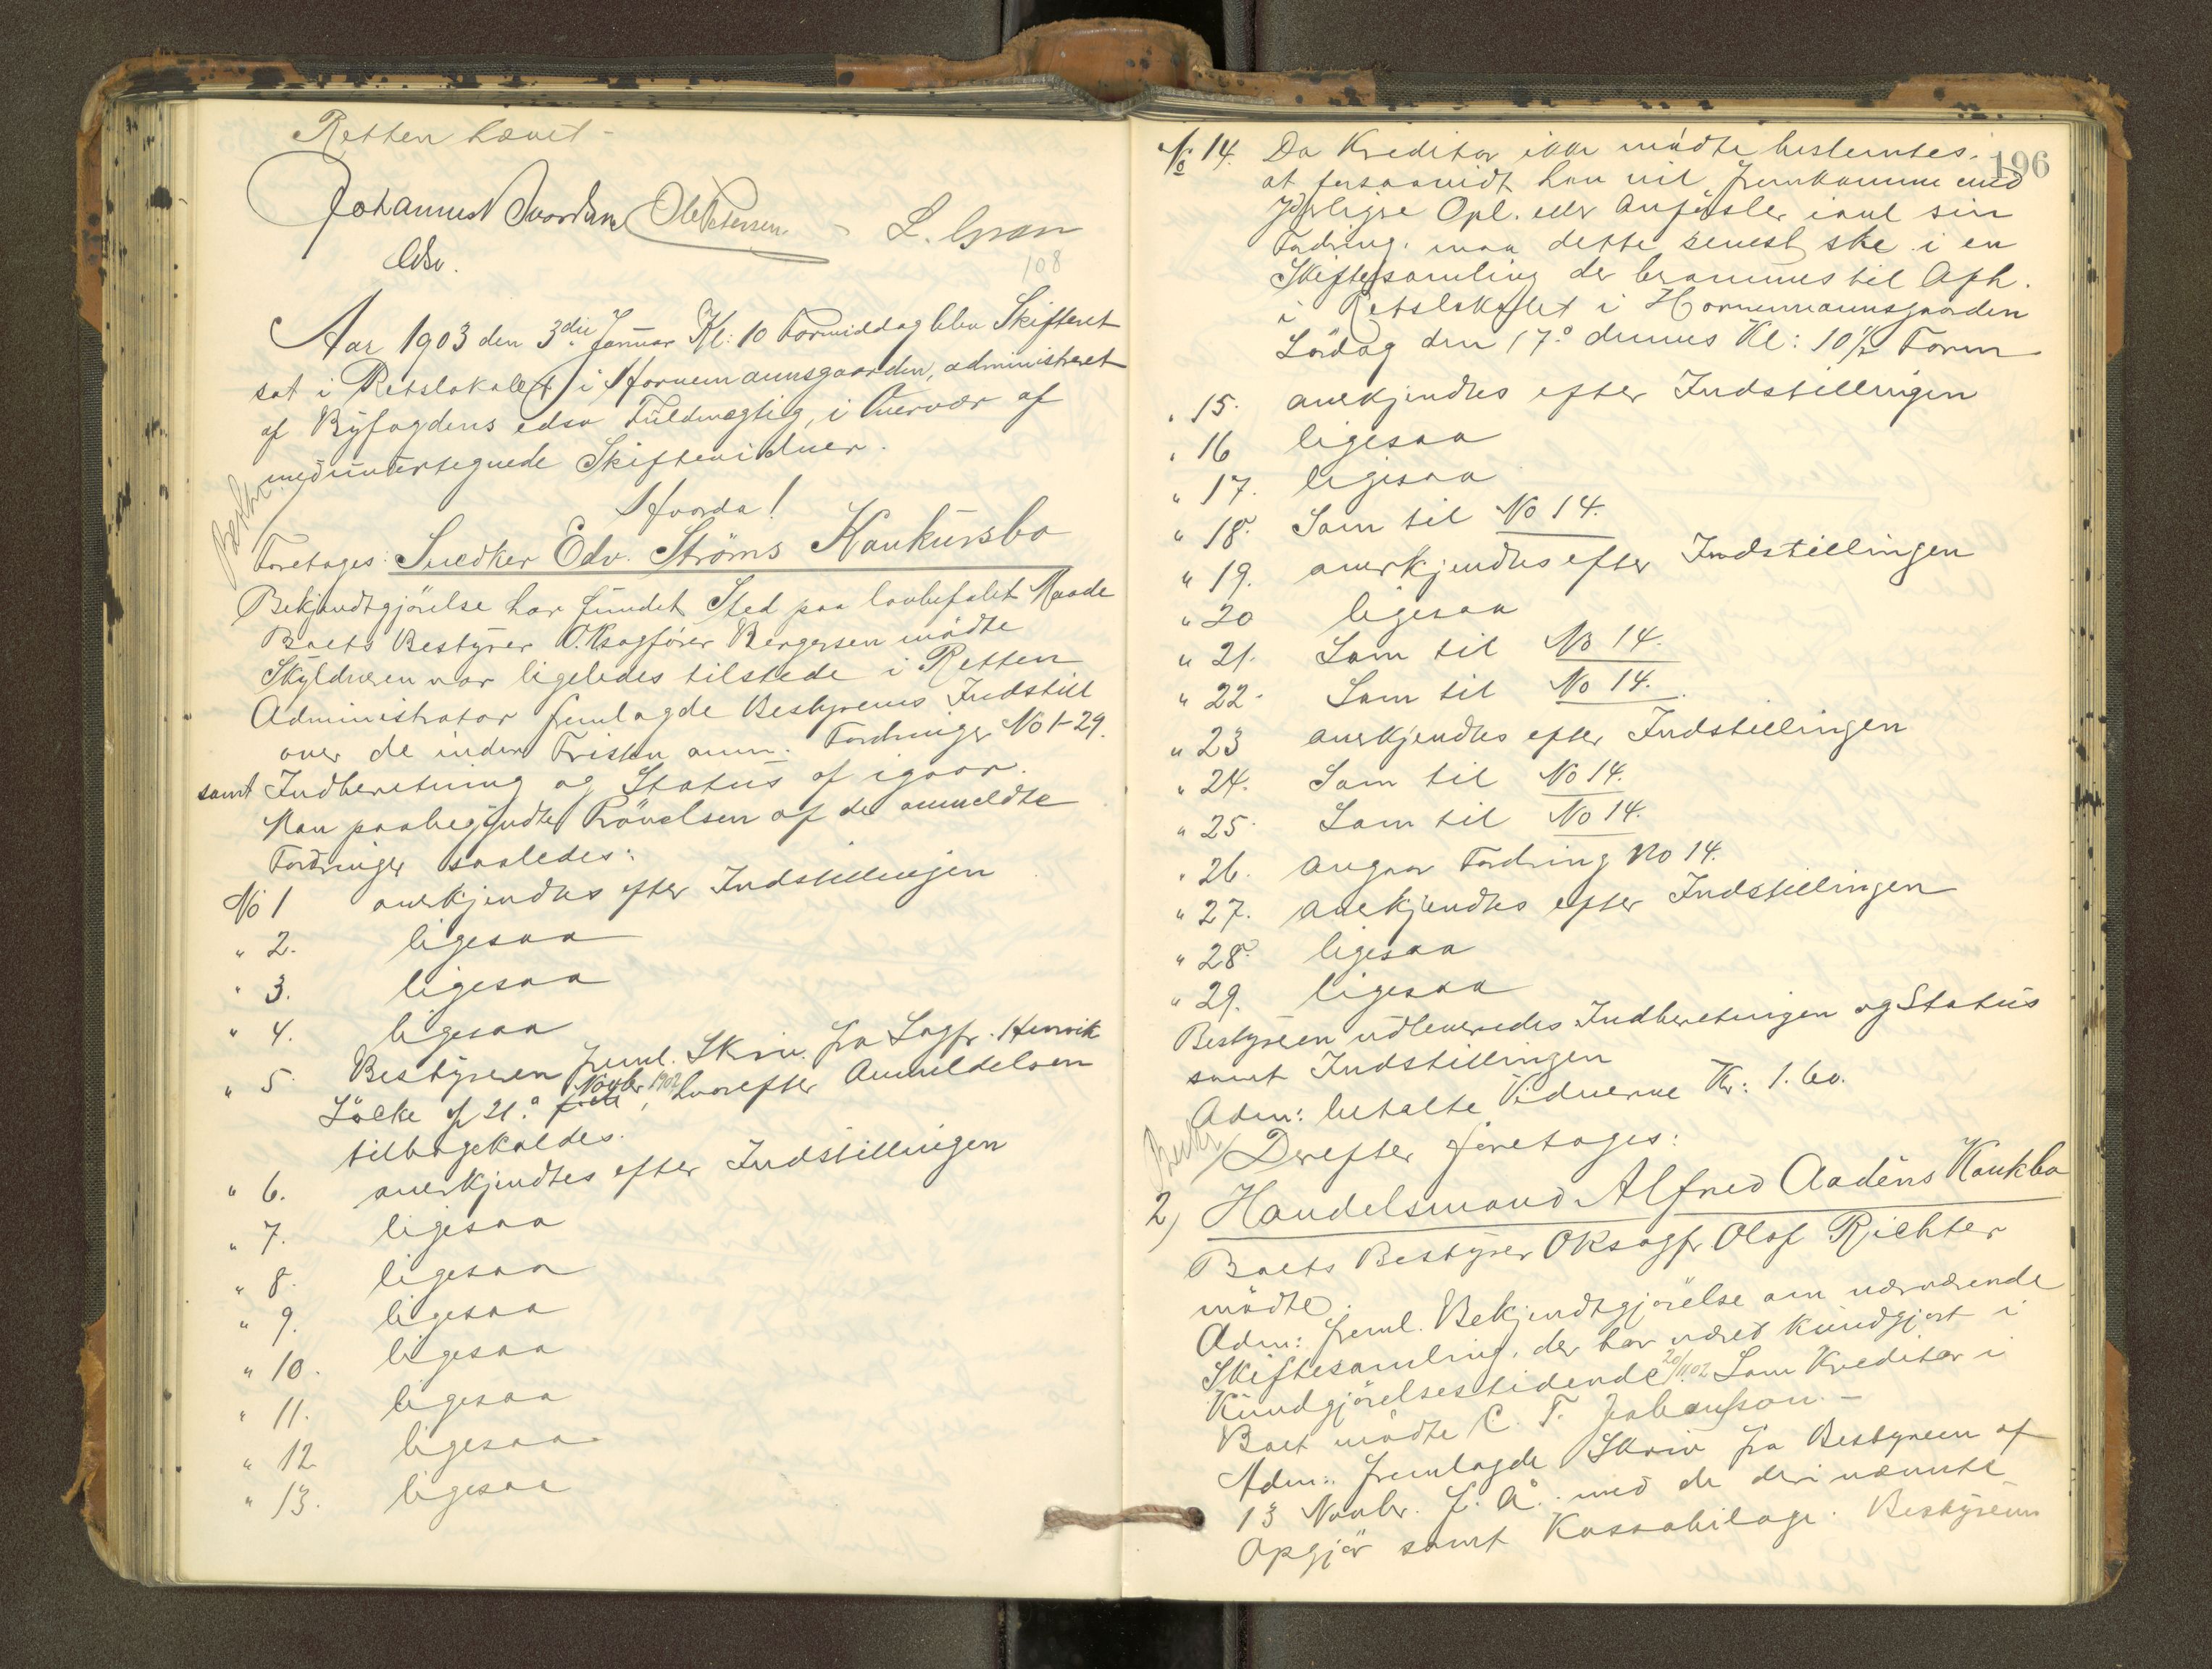 Retten hævet -
Johannes Svordan Ole Petersen - L. Gran
Edsv.
108
Aar 1903 den 3die Januar Kl: 10 Formiddag blev Skifteret
sat i Retslokalet i Hornemannsgaarden, administreret
af Byfogdens edsv Fuldmægtig, i Overvær af
medundertegnede Skiftevidner.
Hvorda!
Foretages: Snedker Edv. Ströms Konkursbo
Bekjendtgjörelse har fundet Sted paa lovbefalet Maade
Boets Bestyrer O.Rsagförer Bergersen mödte
Skyldneren var ligeledes tilstede i Retten
Administrator fremlagde Bestyrerens Indstill
over de inden Fristen anm. Fordringer No 1-29.
samt Indberetning og Status af igaar.
Man paabegyndte Prövelsen af de anmeldte
Fordringer saaledes:
No 1 anerkjendtes efter Indstillingen
" 2. ligesaa
" 3. ligesaa
" 4. ligesaa
" 5. Bestyreren freml. Skriv. fra Sagf. Henrik
Löcke af 21.° Novbr 1902, hvorefter Anmeldelsen
tilbagekaldes.
" 6. anerkjendtes efter Indstillingen
" 7. ligesaa
" 8. ligesaa
" 9. ligesaa
" 10. ligesaa
" 11. ligesaa
" 12 ligesaa
" 13. ligesaa
196
No 14. Da Kreditor ikke mödte bestemtes.
at forsaavidt han vil fremkomme med
yderligre Opl. eller Anförsler ianl sin
Fordring. maa dette senest ske i en
Skiftesamling der berammes til Aph.
i Retslokalet i Hornemannsgaarden
Lördag den 17.° dennes Kl: 10½ Form
" 15. anerkjendtes efter Indstillingen
" 16 ligesaa
" 17. ligesaa
" 18. Som til No 14.
" 19. anerkjendtes efter Indstillingen
" 20 ligesaa
" 21. Som til No 14.
" 22. Som til No 14.
" 23 anerkjendtes efter Indstillingen
" 24. Som til No 14.
" 25. Som til No 14.
" 26. angaar Fordring No 14.
" 27. anerkjendtes efter Indstillingen
" 28. ligesaa
" 29. ligesaa
Bestyreren udleveredes Indberetningen og Status
samt Indstillingen
Adm: betalte Vidnerne Kr: 1.60.
Derefter foretages:
2) Handelsmand Alfred Aadens Konkbo
Boets Bestyrer ORsagf. Olaf Richter
mödte.
Adm: freml. Bekjendtgjörelse om nærværende
Skiftesamling, der har været kundgjort i
Kundgjörelsestidende 20/11.02 Som Kreditor i
Boet mödte C. T. Johansson. -
Adm: fremlagde Skriv fra Bestyreren af
13 Novbr. f. A. med de deri nævnte
Opgjör samt Kassabilage. Bestyreren